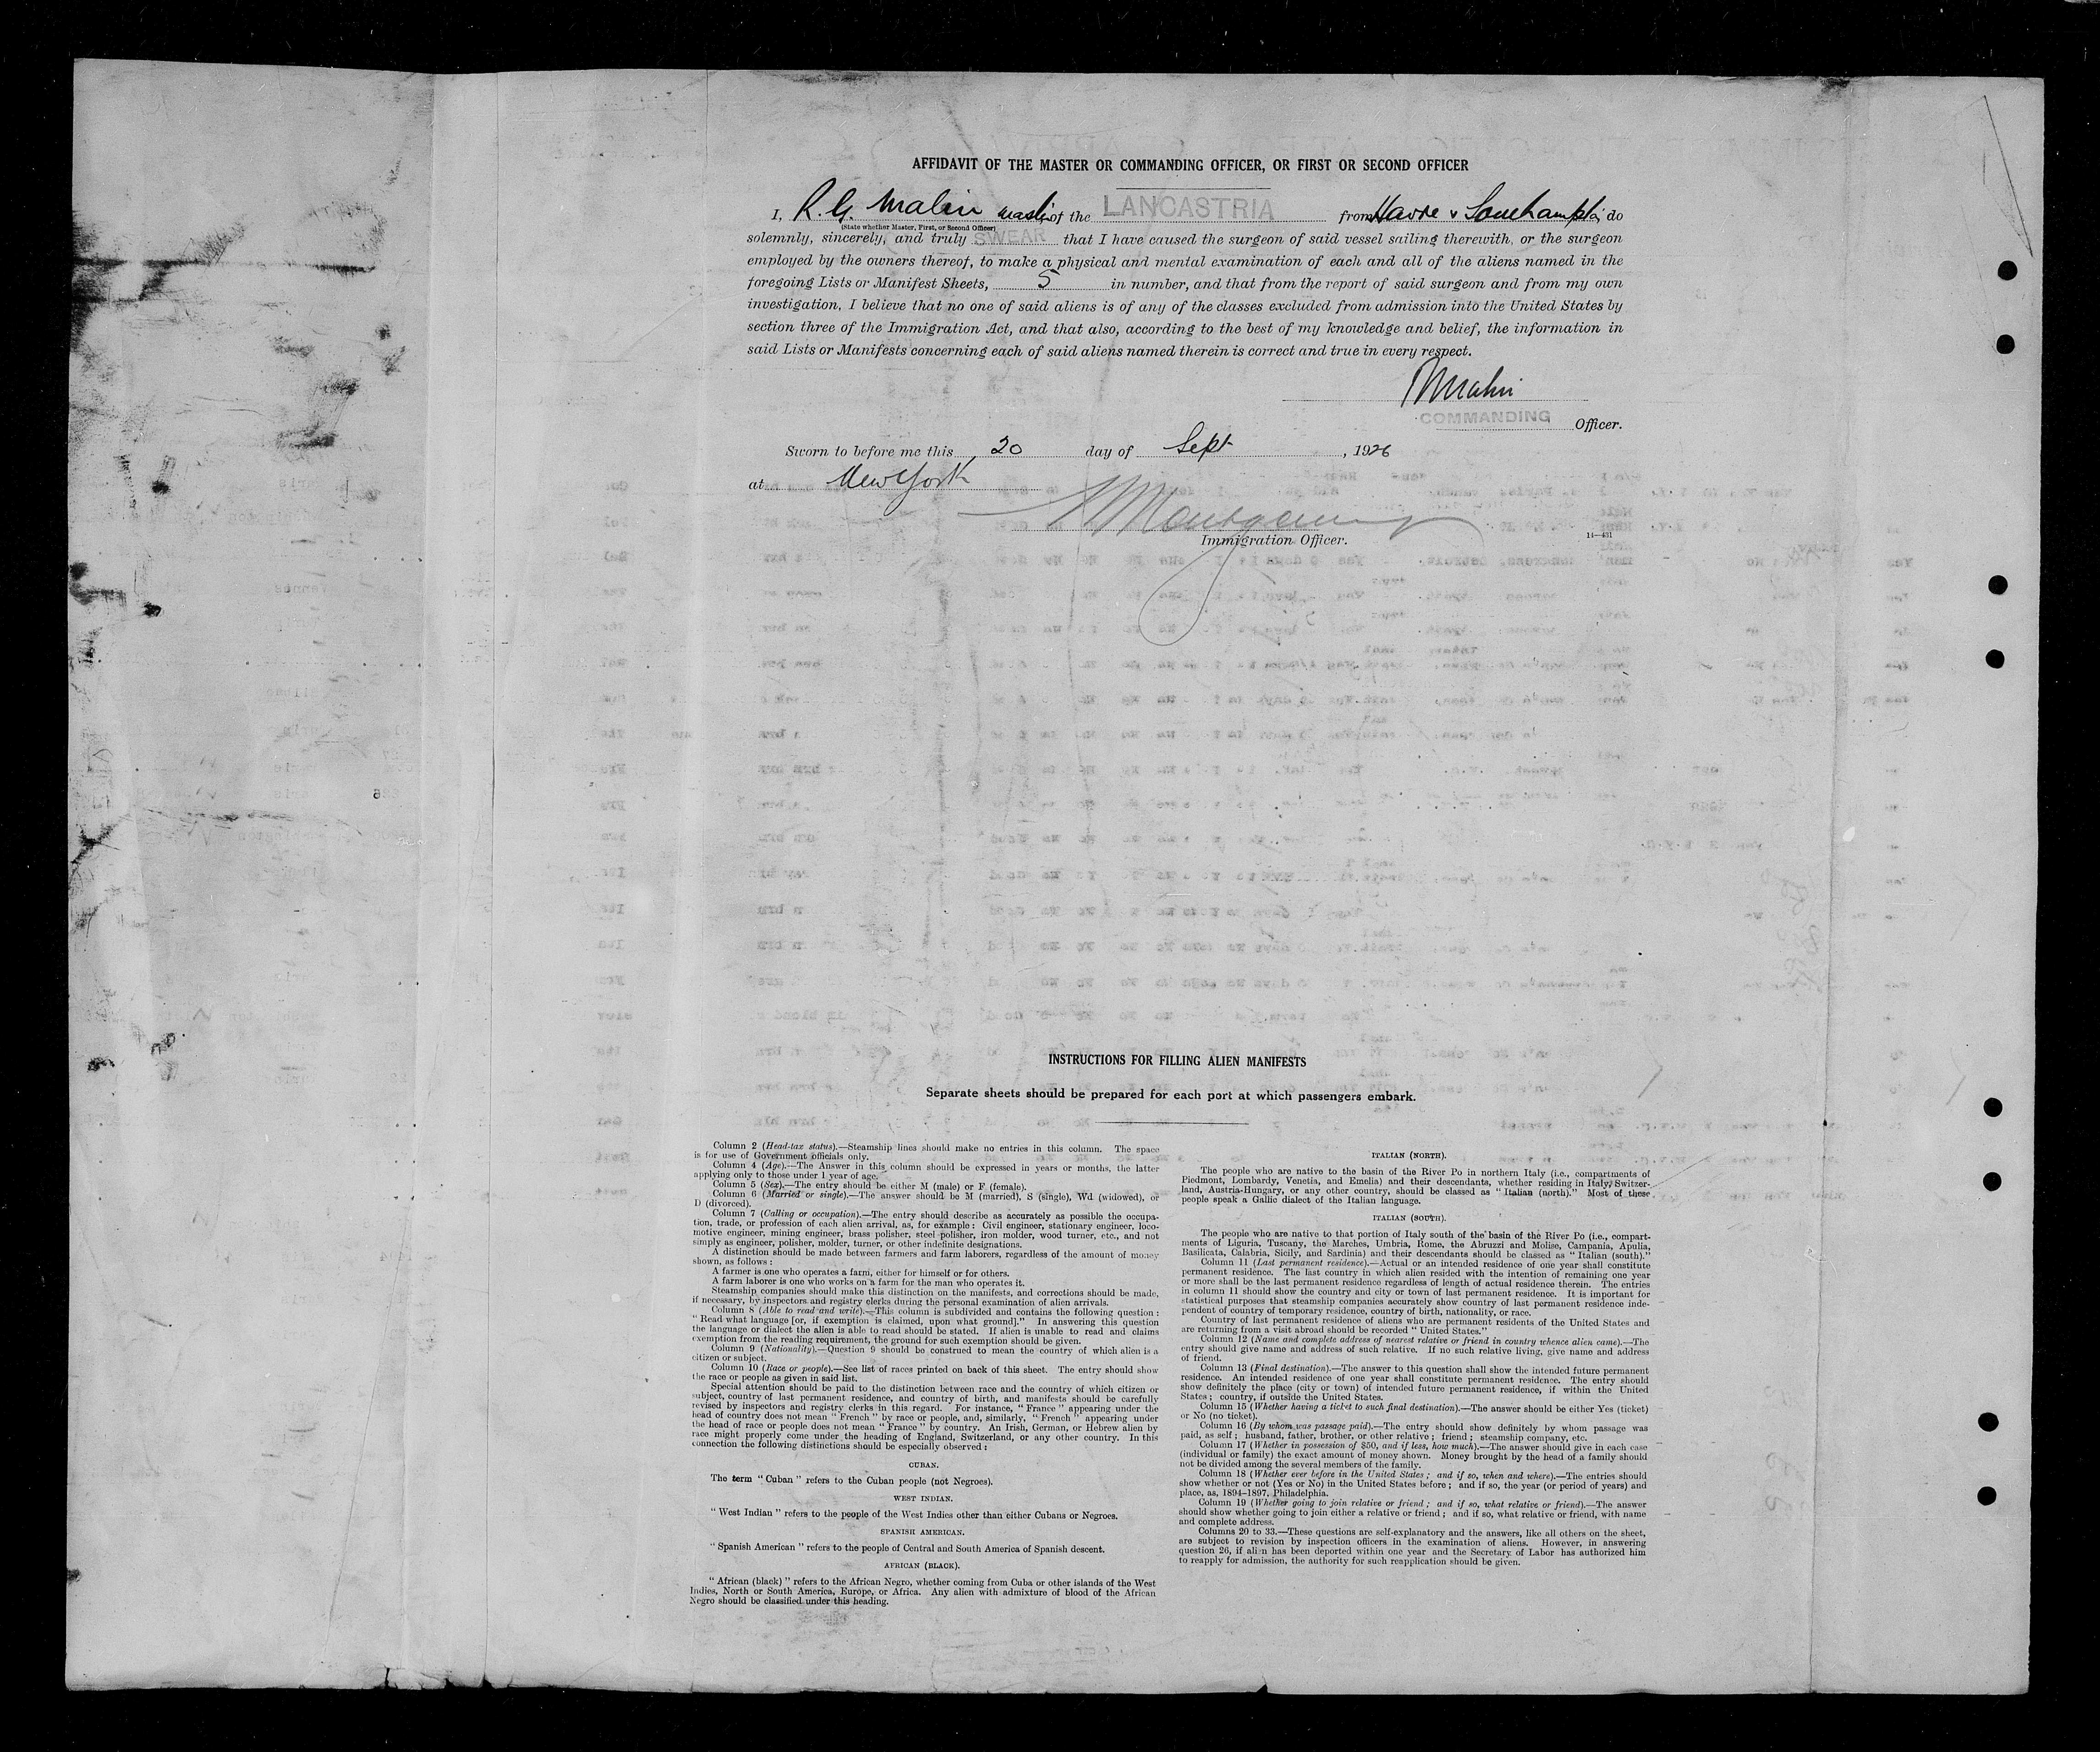 AFFIDAVIT OF THE MASTER OR COMMANDING OFFICER, OR FIRST OR SECOND OFFICER
I, R. G. Malin master of the LANCASTRIA from Havre & Southampton do
(State whether Master, First, or Second Officer)
solemnly, sincerely, and truly SWEAR that I have caused the surgeon of said vessel sailing therewith, or the surgeon
employed by the owners thereof, to make a physical and mental examination of each and all of the aliens named in the
foregoing Lists or Manifest Sheets, 5 in number, and that from the report of said surgeon and from my own
investigation, I believe that no one of said aliens is of any of the classes excluded from admission into the United States by
section three of the Immigration Act, and that also, according to the best of my knowledge and belief, the information in
said Lists or Manifests concerning each of said aliens named therein is correct and true in every respect.
RMalin
COMMANDING Officer.
Sworn to before me this 20 day of Sept, 1926
at New York
Montgomery
Immigration Officer.
14—431
INSTRUCTIONS FOR FILLING ALIEN MANIFESTS
Separate sheets should be prepared for each port at which passengers embark.
Column 2 (Head-tax status).—Steamship lines should make no entries in this column. The space
is for use of Government officials only.
Column 4 (Age).—The Answer in this column should be expressed in years or months, the latter
applying only to those under 1 year of age.
Column 5 (Sex).—The entry should be either M (male) or F (female).
Column 6 (Married or single).—The answer should be M (married), S (single), Wd (widowed), or
D (divorced).
Column 7 (Calling or occupation).—The entry should describe as accurately as possible the occupa-
tion, trade, or profession of each alien arrival, as, for example: Civil engineer, stationary engineer, loco-
motive engineer, mining engineer, brass polisher, steel polisher, iron molder, wood turner, etc., and not
simply as engineer, polisher, molder, turner, or other indefinite designations.
A distinction should be made between farmers and farm laborers, regardless of the amount of money
shown, as follows:
A farmer is one who operates a farm, either for himself or for others.
A farm laborer is one who works on a farm for the man who operates it.
Steamship companies should make this distinction on the manifests, and corrections should be made,
if necessary, by inspectors and registry clerks during the personal examination of alien arrivals.
Column 8 (Able to read and write).—This column is subdivided and contains the following question:
"Read what language [or, if exemption is claimed, upon what ground]." In answering this question
the language or dialect the alien is able to read should be stated. If alien is unable to read and claims
exemption from the reading requirement, the ground for such exemption should be given.
Column 9 (Nationality).—Question 9 should be construed to mean the country of which alien is a
citizen or subject.
Column 10 (Race or people).—See list of races printed on back of this sheet. The entry should show
the race or people as given in said list.
Special attention should be paid to the distinction between race and the country of which citizen or
subject, country of last permanent residence, and country of birth, and manifests should be carefully
revised by inspectors and registry clerks in this regard. For instance, "France" appearing under the
head of country does not mean "French" by race or people, and, similarly, "French" appearing under
the head of race or people does not mean "France" by country. An Irish, German, or Hebrew alien by
race might properly come under the heading of England, Switzerland, or any other country. In this
connection the following distinctions should be especially observed:
CUBAN.
The term "Cuban" refers to the Cuban people (not Negroes).
WEST INDIAN.
"West Indian" refers to the people of the West Indies other than either Cubans or Negroes.
SPANISH AMERICAN.
"Spanish American" refers to the people of Central and South America of Spanish descent.
AFRICAN (BLACK).
"African (black)" refers to the African Negro, whether coming from Cuba or other islands of the West
Indies, North or South America, Europe, or Africa. Any alien with admixture of blood of the African
Negro should be classified under this heading.
ITALIAN (NORTH).
The people who are native to the basin of the River Po in northern Italy (i.e., compartments of
Piedmont, Lombardy, Venetia, and Emelia) and their descendants, whether residing in Italy, Switzer-
land, Austria-Hungary, or any other country, should be classed as "Italian (north)." Most of these
people speak a Gallic dialect of the Italian language.
ITALIAN (SOUTH).
The people who are native to that portion of Italy south of the basin of the River Po (i.e., compart-
ments of Liguria, Tuscany, the Marches, Umbria, Rome, the Abruzzi and Molise, Campania, Apulia,
Basilicata, Calabria, Sicily, and Sardinia) and their descendants should be classed as "Italian (south)."
Column 11 (Last permanent residence).—Actual or an intended residence of one year shall constitute
permanent residence. The last country in which alien resided with the intention of remaining one year
or more shall be the last permanent residence regardless of length of actual residence therein. The entries
in column 11 should show the country and city or town of last permanent residence. It is important for
statistical purposes that steamship companies accurately show country of last permanent residence inde-
pendent of country of temporary residence, country of birth, nationality, or race.
Country of last permanent residence of aliens who are permanent residents of the United States and
are returning from a visit abroad should be recorded "United States."
Column 12 (Name and complete address of nearest relative or friend in country whence alien came).—The
entry should give name and address of such relative. If no such relative living, give name and address
of friend.
Column 13 (Final destination).—The answer to this question shall show the intended future permanent
residence. An intended residence of one year shall constitute permanent residence. The entry should
show definitely the place (city or town) of intended future permanent residence, if within the United
States; country, if outside the United States.
Column 15 (Whether having a ticket to such final destination).—The answer should be either Yes (ticket)
or No (no ticket).
Column 16 (By whom was passage paid).—The entry should show definitely by whom passage was
paid, as self; husband, father, brother, or other relative; friend; steamship company, etc.
Column 17 (Whether in possession of $50, and if less, how much).—The answer should give in each case
(individual or family) the exact amount of money shown. Money brought by the head of a family should
not be divided among the several members of the family.
Column 18 (Whether ever before in the United States; and if so, when and where).—The entries should
show whether or not (Yes or No) in the United States before; and if so, the year (or period of years) and
place, as, 1894–1897, Philadelphia.
Column 19 (Whether going to join relative or friend; and if so, what relative or friend).—The answer
should show whether going to join either a relative or friend; and if so, what relative or friend, with name
and complete address.
Columns 20 to 33.—These questions are self-explanatory and the answers, like all others on the sheet,
are subject to revision by inspection officers in the examination of aliens. However, in answering
question 26, if alien has been deported within one year and the Secretary of Labor has authorized him
to reapply for admission, the authority for such reapplication should be given.